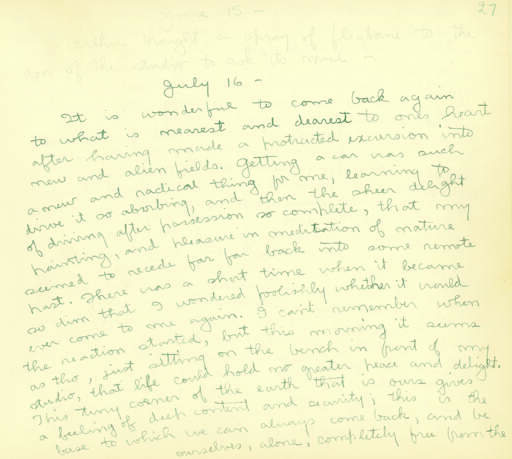 27
June 15 -
brought a spray of fleabane to the
door of the studio to ask its name -
July 16 -
It is wonderful to come back again
to what is nearest and dearest to ones heart
after having made a protracted excursion into
new and alien fields. Getting a car was such
a new and radical thing for me, learning to
drive it so absorbing, and then the sheer delight
of driving after possession so complete, that my
painting, and pleasure in meditation of nature
seemed to recede far far back into some remote
past. There was a short time when it became
so dim that I wondered foolishly whether it would
ever come to me again. I can't remember when
the reaction started, but this morning it seems
as tho, just sitting on the bench in front of my
studio, that life could hold no greater peace and delight.
This tiny corner of the earth that is ours gives
a feeling of deep content and security; this is the
base to which we can always come back, and be
ourselves, alone, completely free from the